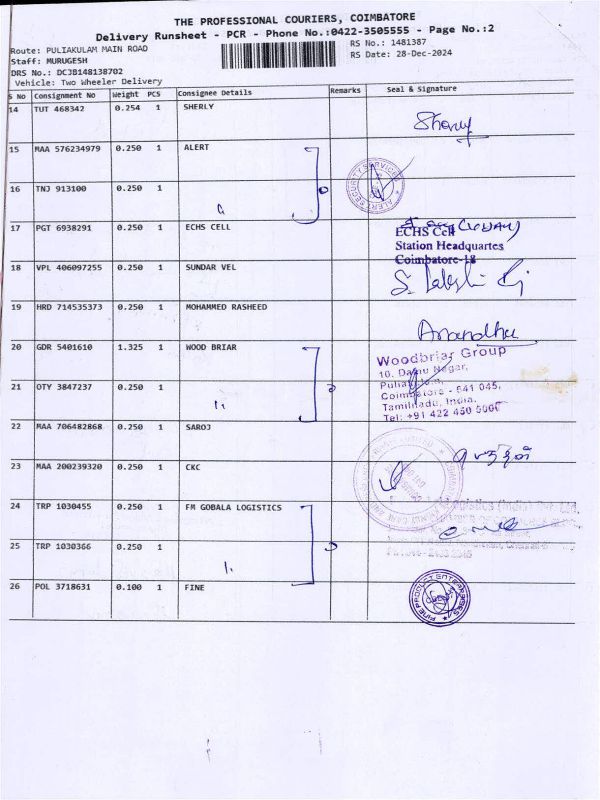 THE PROFESSIONAL COURIERS, COIMBATORE
Delivery Runsheet - PCR - Phone No.:0422-3505555 - Page No.:2
Route: PULIAKULAM MAIN ROAD
RS No.: 1481387
Staff: MURUGESH
RS Date: 28-Dec-2024
DRS No.: DCJB148138702
Vehicle: Two Wheeler Delivery
S No Consignment No Weight PCS Consignee Details Remarks Seal & Signature
14 TUT 468342 0.254 1 SHERLY
Sherly
15 MAA 576234979 0.250 1 ALERT
ALERT SECURITY SERVICES
16 TNJ 913100 0.250 1
17 PGT 6938291 0.250 1 ECHS CELL
ECHS Cell
Station Headquartes
Coimbatore-18
18 VPL 406097255 0.250 1 SUNDAR VEL
19 HRD 714535373 0.250 1 MOHAMMED RASHEED
20 GDR 5401610 1.325 1 WOOD BRIAR
Woodbriar Group
10, Damu Nagar,
21 OTY 3847237 0.250 1
Coimbatore - 641 045,
Tamilnadu, India.
Tel: +91 422 450 5000
22 MAA 706482868 0.250 1 SAROJ
23 MAA 200239320 0.250 1 CKC
24 TRP 1030455 0.250 1 FM GOBALA LOGISTICS
25 TRP 1030366 0.250 1
26 POL 3718631 0.100 1 FINE
FINE PRODUCT ENTERPRISES